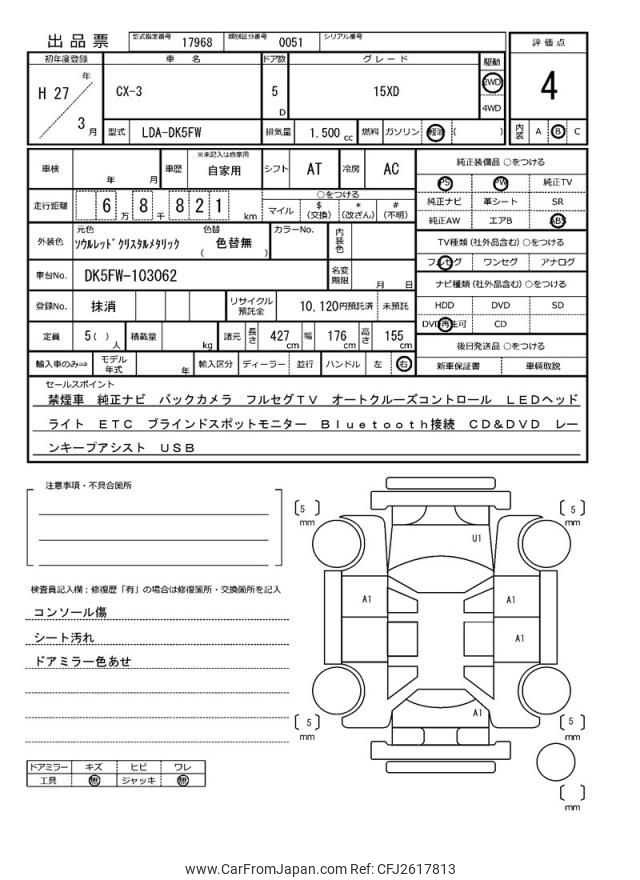 出品票 型式指定番号 17968 類別区分番号 0051 シリアル番号
初年度登録 車名 ドア数 グレード 駆動 評価点
H 27 年 3 月 CX-3 5 D 15XD 2WD 4WD 4
型式 LDA-DK5FW 排気量 1.500 cc 燃料 ガソリン 軽油 ( ) 内装 A B C
車検 年 月 車歴 ※未記入は自家用 自家用 シフト AT 冷房 AC
純正装備品 ○をつける
PS PW 純正TV
純正ナビ 革シート SR
純正AW エアB ABS
走行距離 6 万 8 千 8 2 1 km ○をつける
マイル $ (交換) * (改ざん) # (不明)
外装色 元色 ソウルレッド゙クリスタルメタリック 色替 ( 色替無 ) カラーNo. 内装色
TV種類 (社外品含む) ○をつける
フルセグ ワンセグ アナログ
車台No. DK5FW-103062 名変期限 月 日
ナビ種類 (社外品含む) ○をつける
HDD DVD SD
DVD再生可 CD
登録No. 抹消 リサイクル預託金 10,120円預託済 未預託
定員 5( ) 人 積載量 kg 諸元 長さ 427 cm 幅 176 cm 高さ 155 cm
後日発送品 ○をつける
新車保証書 車輌取説
輸入車のみ⇨ モデル年式 年 輸入区分 ディーラー 並行 ハンドル 左 右
セールスポイント
禁煙車 純正ナビ バックカメラ フルセグTV オートクルーズコントロール LEDヘッド
ライト ETC ブラインドスポットモニター Bluetooth接続 CD&DVD レー
ンキープアシスト USB
注意事項・不具合箇所
検査員記入欄：修復歴「有」の場合は修復箇所・交換箇所を記入
コンソール傷
シート汚れ
ドアミラー色あせ
ドアミラー キズ ヒビ ワレ
工具 無 ジャッキ 無
[5] mm
[5] mm
U1
A1
A1
A1
A1
[5] mm
[5] mm
[ ] mm
www.CarFromJapan.com Ref: CFJ2617813